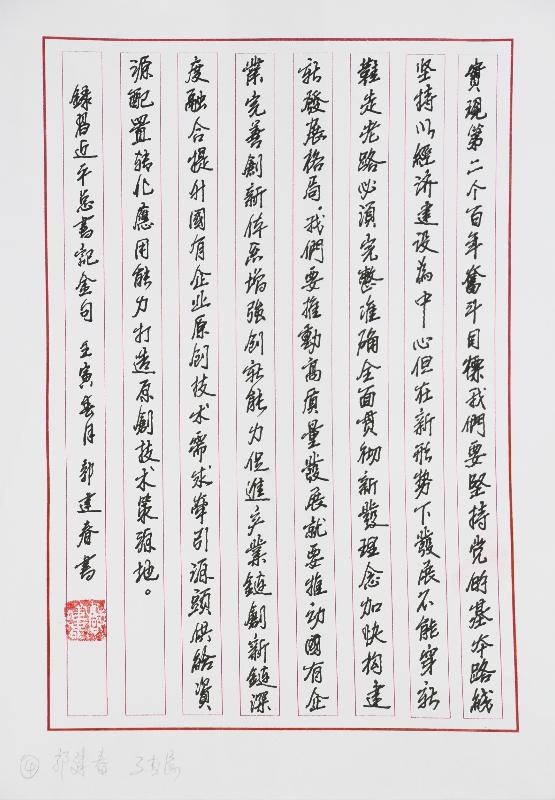 實現第二个百年奮斗目標我們要堅持党的基本路綫
坚持以經济建设為中心但在新形势下發展不能穿新
鞋走老路必須完整准确全面贯彻新發理念加快构建
新發展格局。我們要推動高质量發展就要推动國有企
業完善創新体系增強创新能力促進产業鏈創新鏈深
度融合提升國有企业原创技术需求牽引源頭供给資
源配置转化應用能力打造原創技术策源地。
録習近平总書記金句 壬寅春月 郭建春書
④ 郭建春